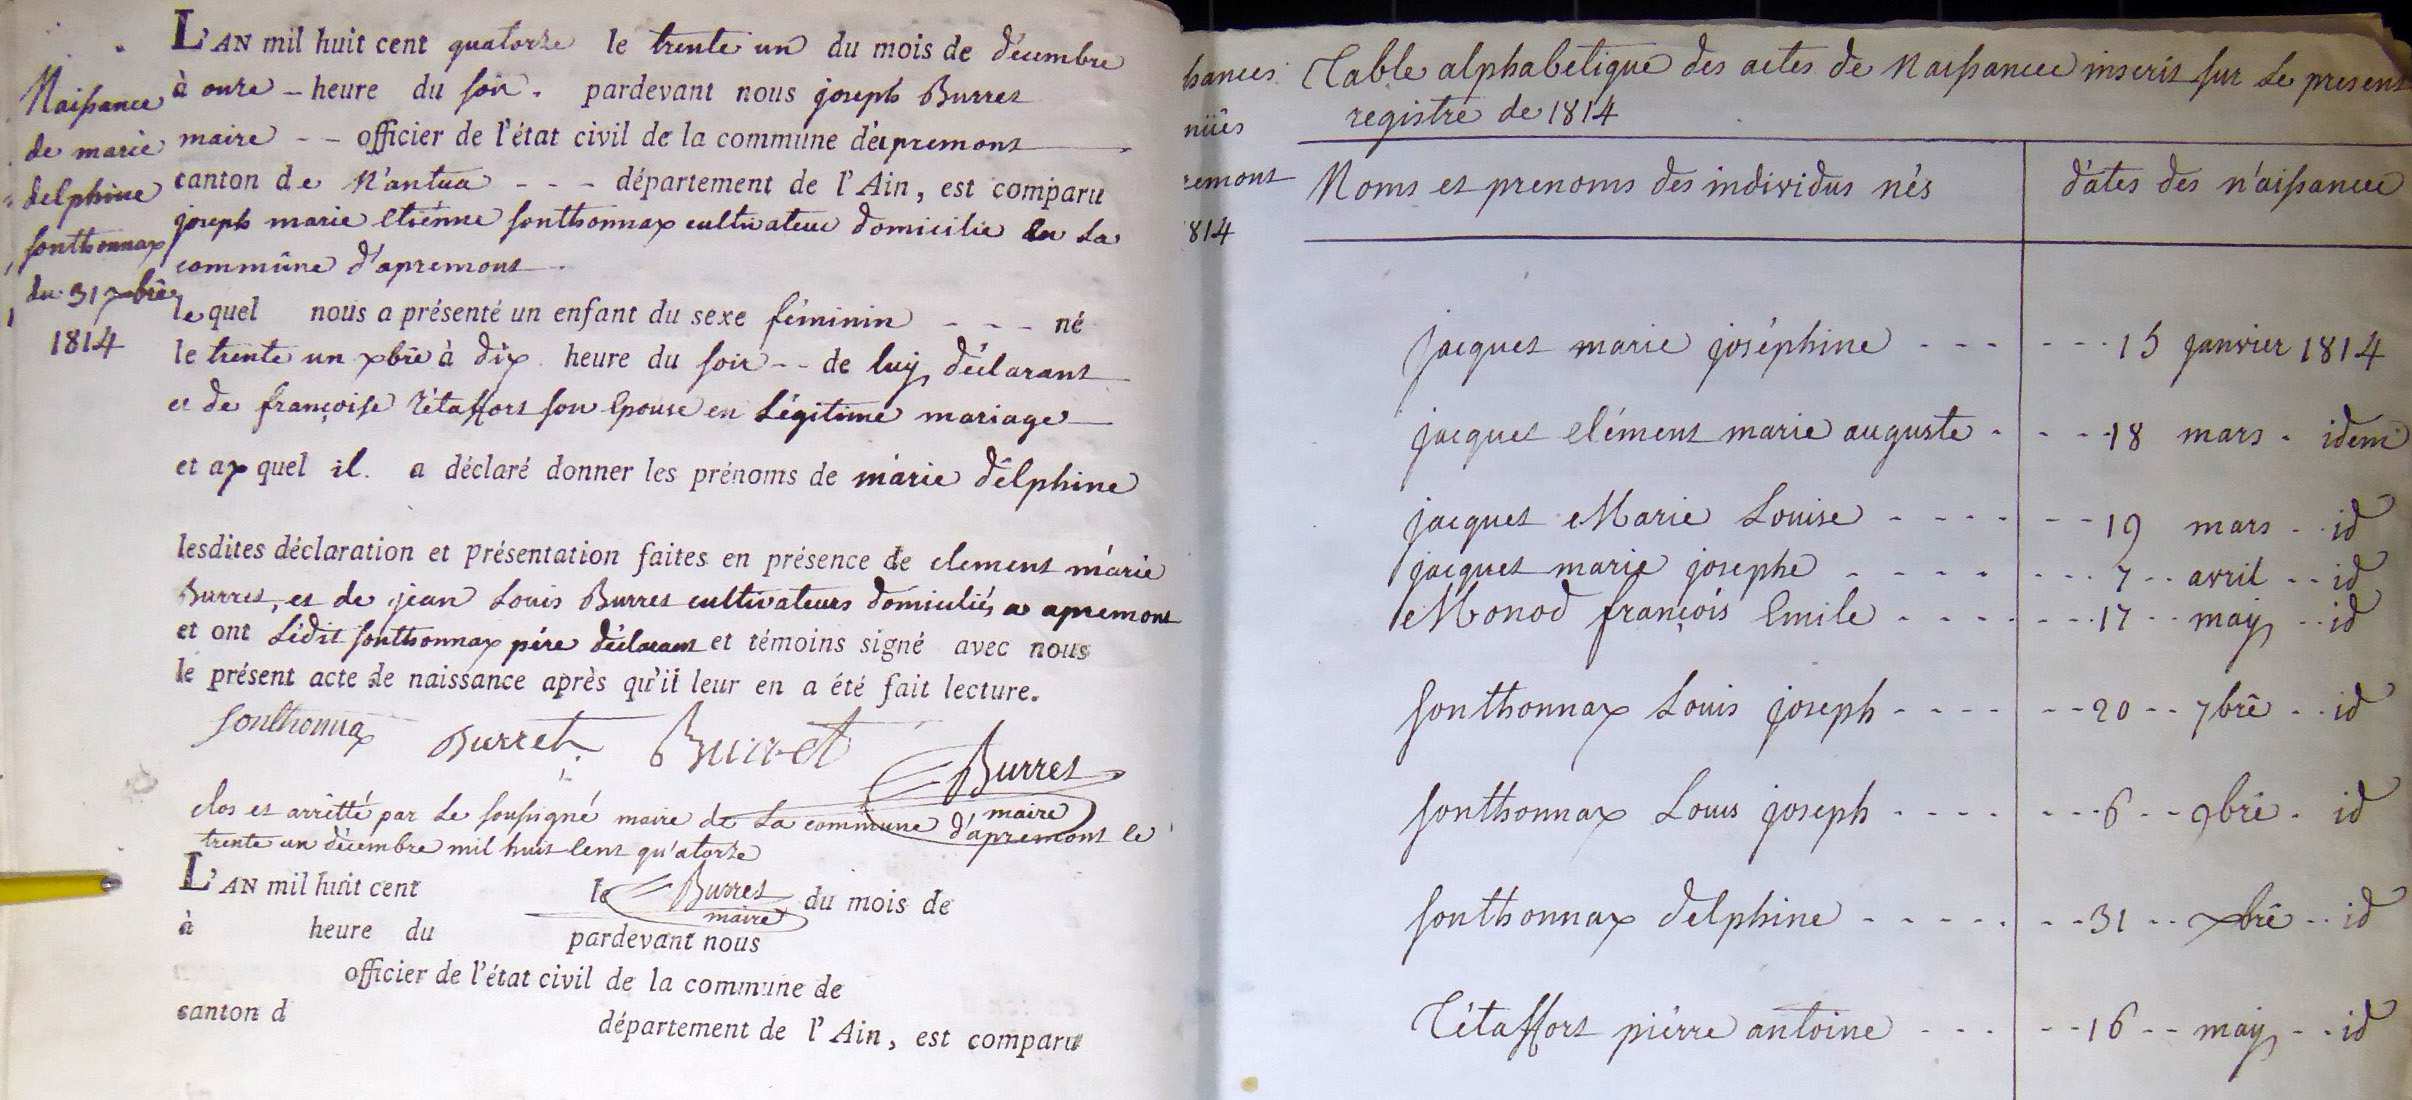 L'AN mil huit cent quatorze le trente un du mois de décembre
à onze - heure du soir. pardevant nous joseph Burret
maire - - officier de l'état civil de la commune d'apremont
canton de N'antua - - - département de l'Ain, est comparu
joseph marie etiénne sonthonnax cultivateur domicilié en La
commûne d'apremont.
lequel nous a présenté un enfant du sexe féminin - - - né
le trente un xbre à dix heure du soir - - de luy déclarant
et de françoise Tétaffort son Epouse en Légitime mariage
et auquel il a déclaré donner les prénoms de marie délphine
lesdites déclaration et présentation faites en présence de clement marie
Burret, et de jean Louis Burret cultivateurs domiciliés a apremont
et ont Lédit sonthonnax pére déclarant et témoins signé avec nous
le présent acte de naissance après qu'il leur en a été fait lecture.
sonthonnax Burret Burret Burret
maire
clos et arrètté par Le soussigné maire de La commune d'apremont le
trente un décembre mil huit cent qu'atorze
Burret
maire
L'AN mil huit cent le du mois de
à heure du pardevant nous
officier de l'état civil de la commune de
canton d département de l'Ain, est comparu
Naissance
de marie
delphine
sonthonnax
du 31 xbre
1814
ssances
nüés
remont
1814
Table alphabetique des actes de Naissance inscrit sur Le present
registre de 1814
Noms et prenoms des individus nés d'ates des n'aissance
jacquet marie joséphine - - - - - - 15 janvier 1814
jacquet clément marie auguste - - - - 18 mars - idem
jacquet Marie Louise - - - - - - 19 mars - - id
jacquet marie josephe - - - - - - - - 7 - - avril - - id
Monod françois Emile - - - - - - - 17 - - may - - id
sonthonnax Louis joseph - - - - - - 20 - - 7bre - - id
sonthonnax Louis joseph - - - - - - - 6 - - 9bre - id
sonthonnax delphine - - - - - - - 31 - - xbre - - id
Tétaffort piérre antoine - - - - - 16 - - may - - id